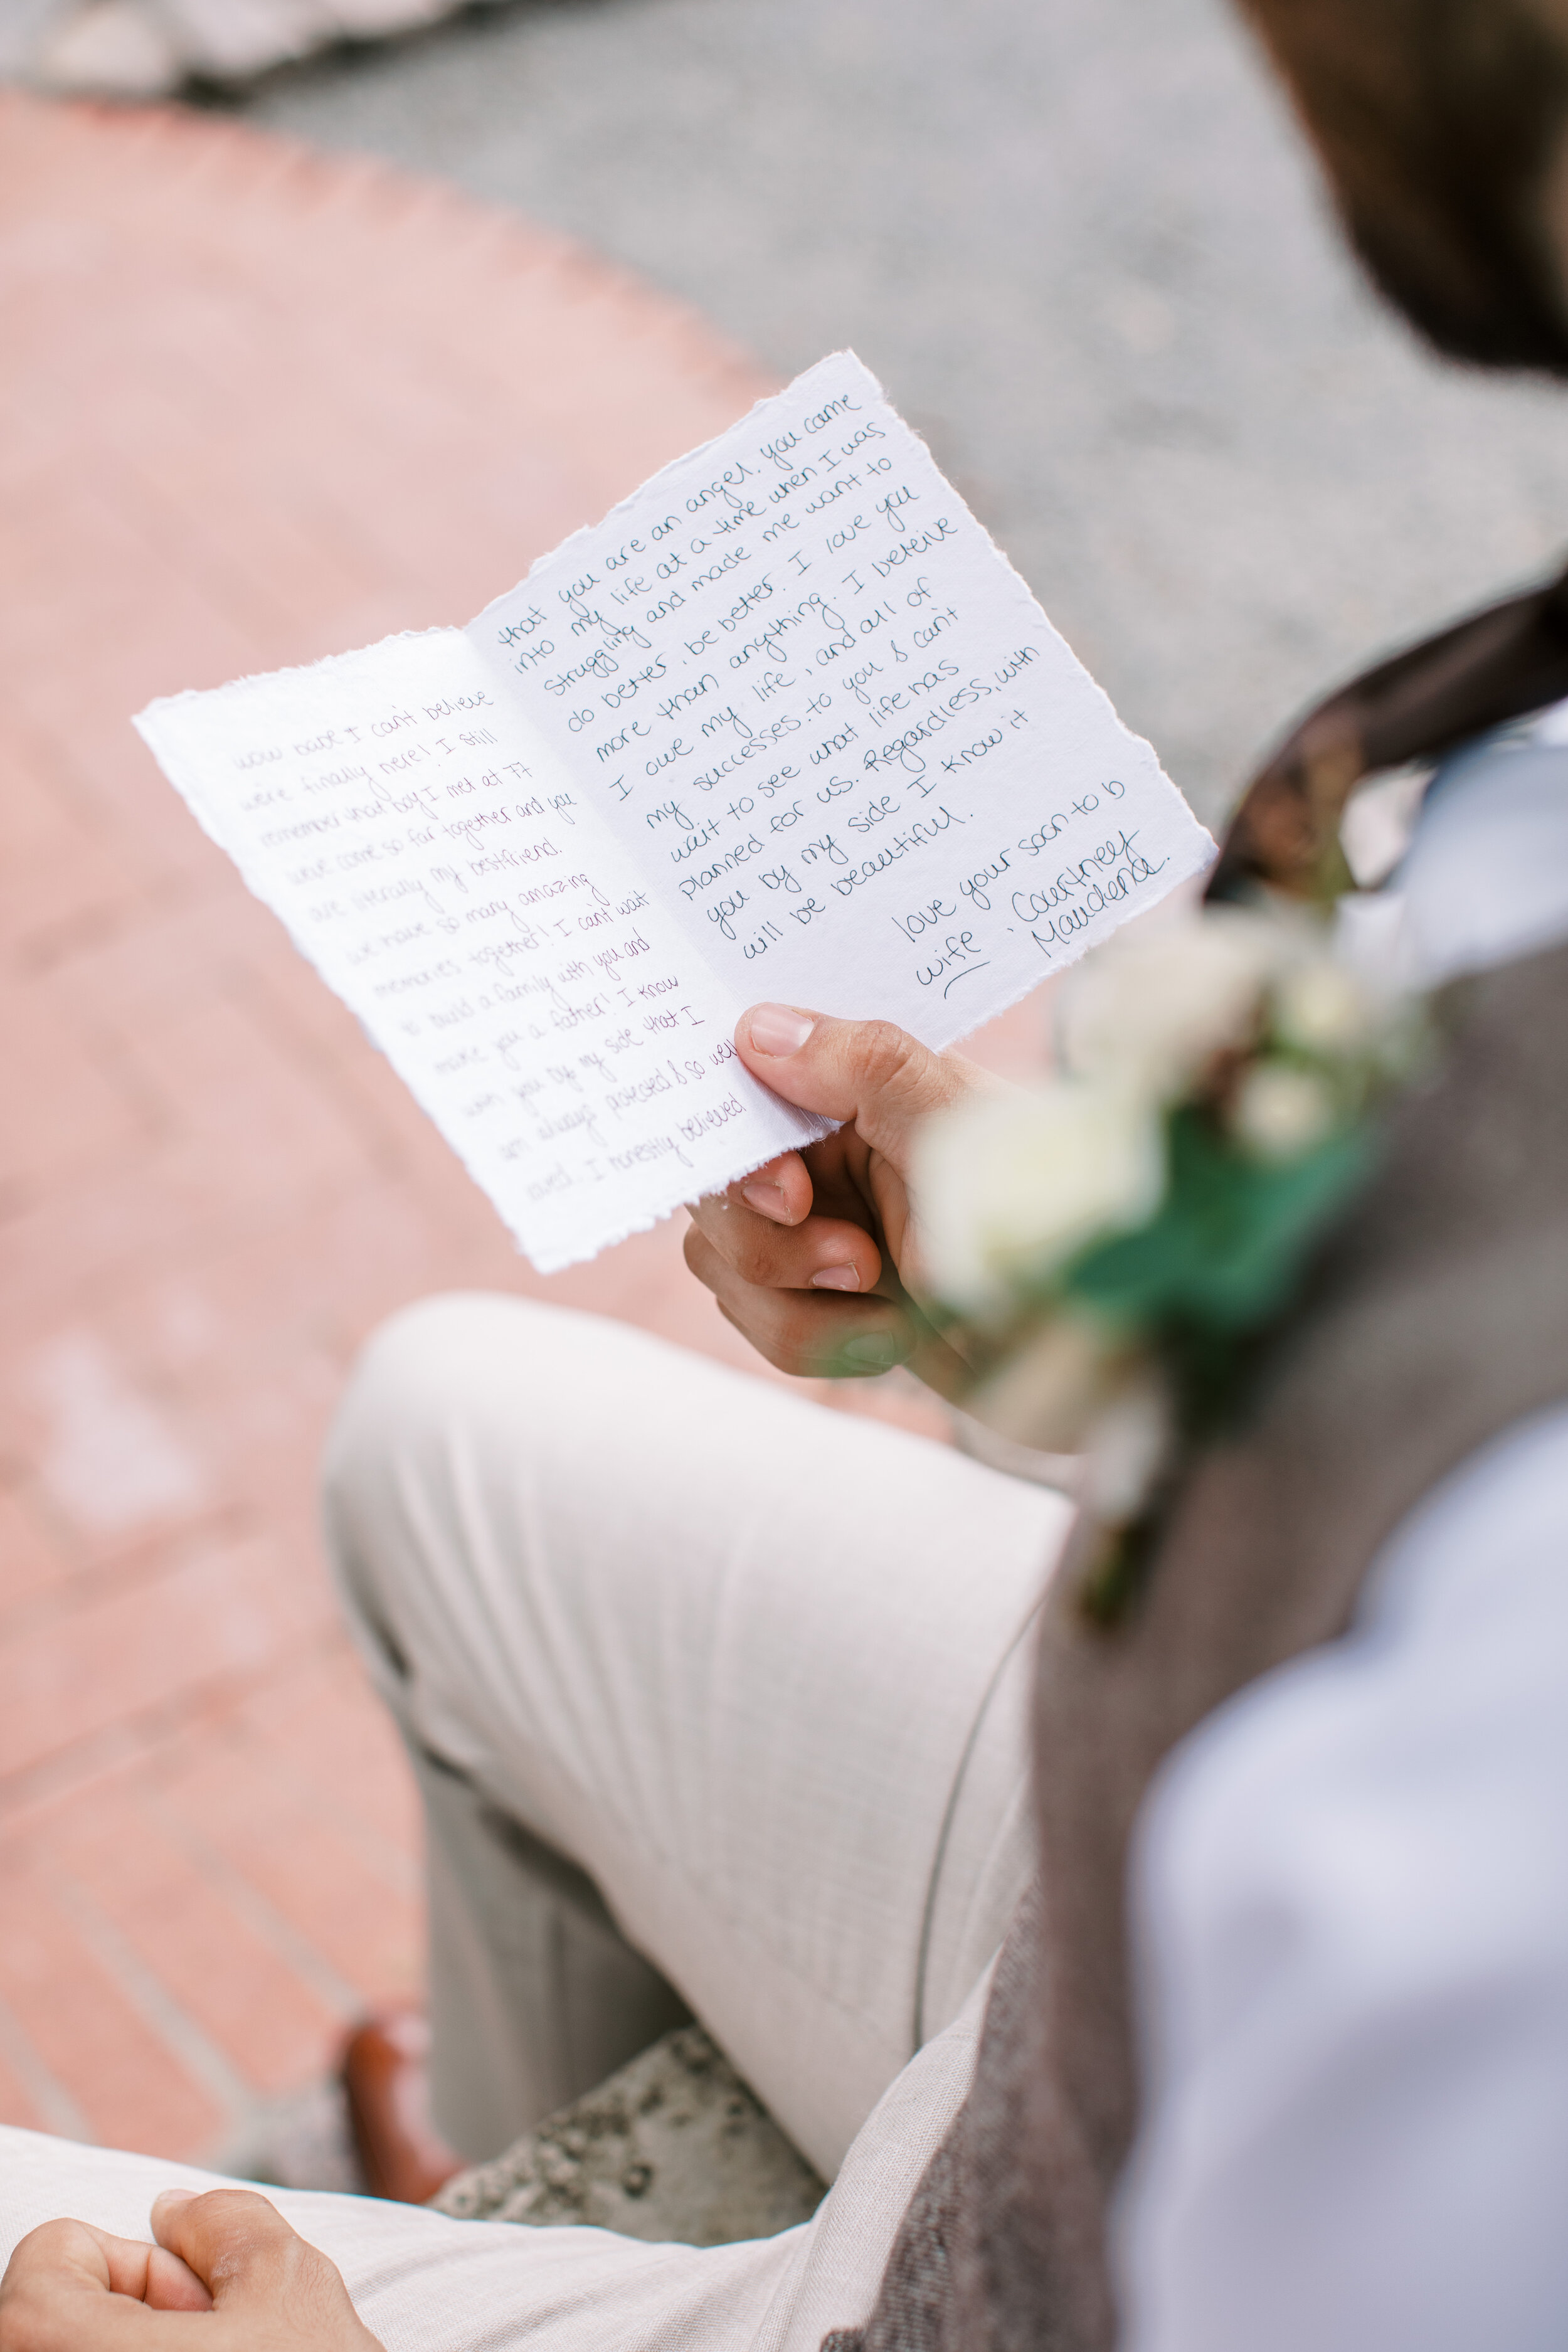 wow babe I can't believe
we're finally here! I still
remember that boy I met at 77
we've come so far together and you
are literally my bestfriend.
we have so many amazing
memories together! I can't wait
to build a family with you and
make you a father! I know
with you by my side that I
am always protected & so well
loved. I honestly believed
that you are an angel. you came
into my life at a time when I was
struggling and made me want to
do better, be better. I love you
more than anything. I beleive
I owe my life, and all of
my successes to you & can't
wait to see what life has
planned for us. Regardless, with
you by my side I know it
will be beautiful.
love your soon to b
wife, Courtney